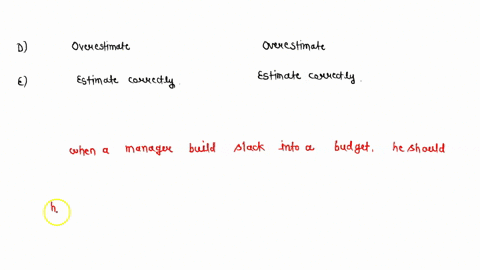 D) Overestimate Overestimate
E) Estimate correctly. Estimate correctly.
when a manager build slack into a budget, he should
h